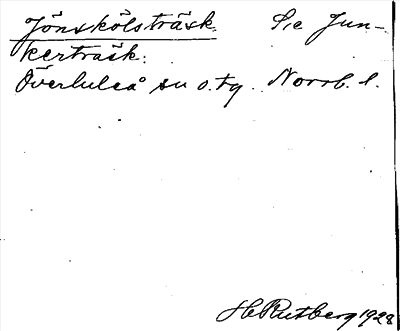 Jönskölsträsk. Se Jun-
kerträsk.
Överluleå sn o. tg. Norrb. l.
H Rutberg 1928